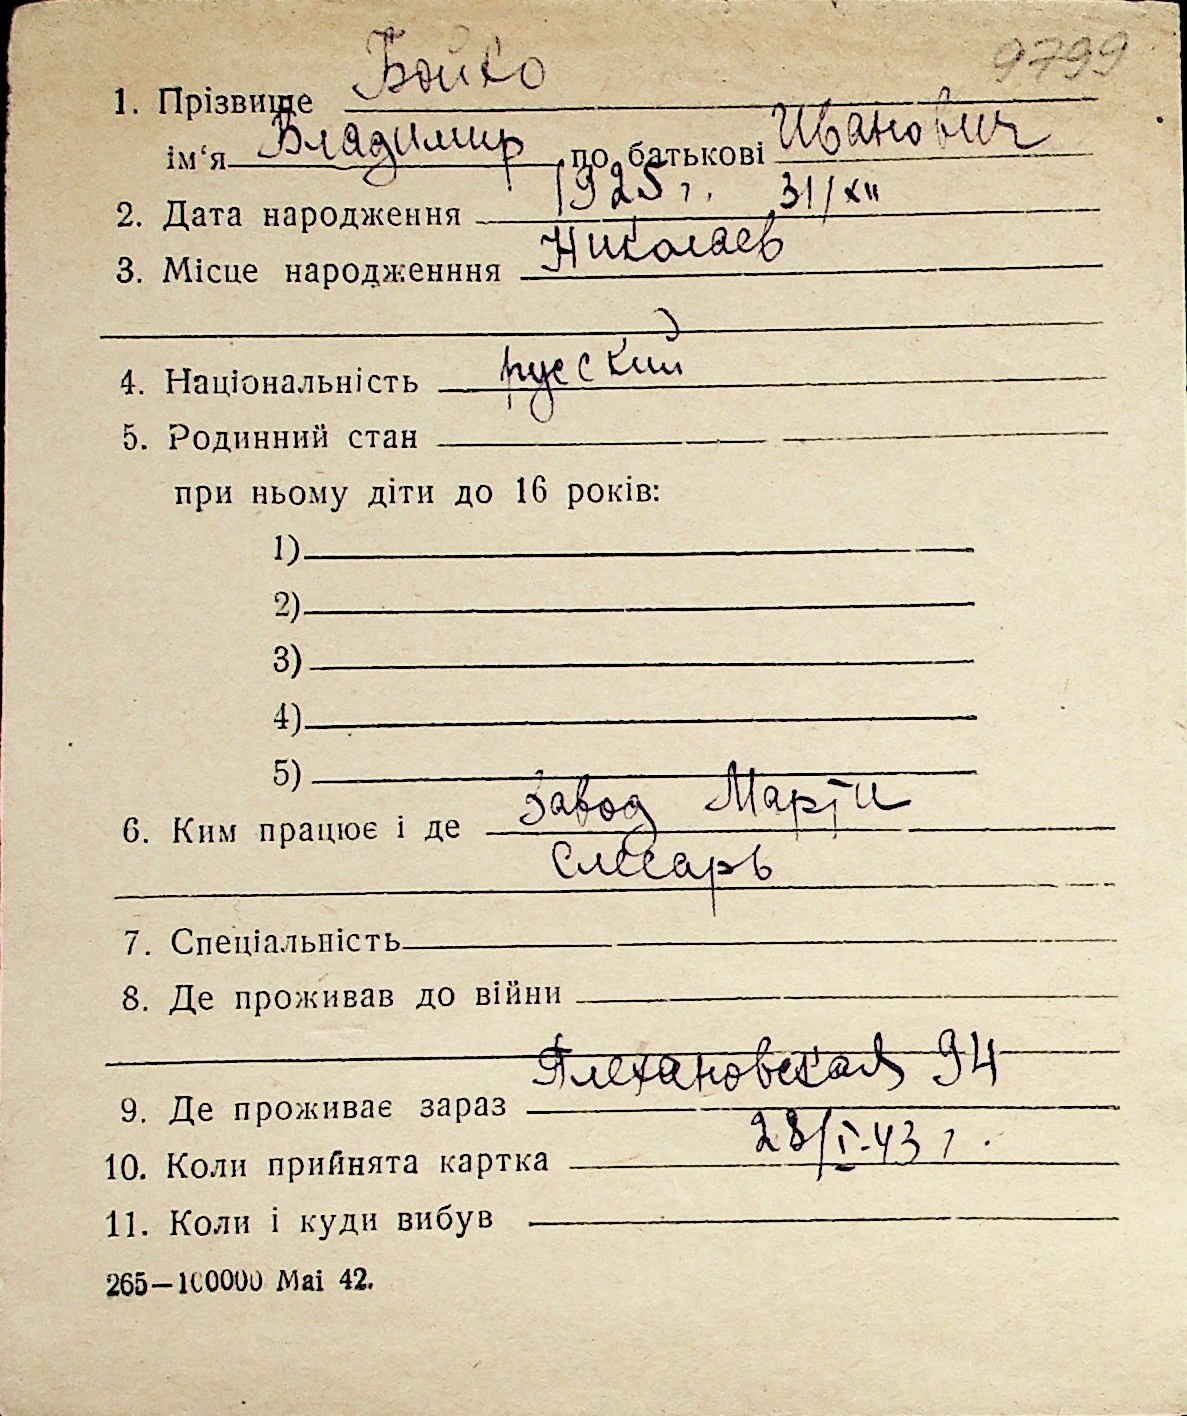 9799
1. Прізвище Бойко
ім‘я Владимир по батькові Иванович
2. Дата народження 1925 г. 31/XII
3. Місце народженння Николаев
4. Національність русский
5. Родинний стан
при ньому діти до 16 років:
1)
2)
3)
4)
5)
6. Ким працює і де завод Марти
слесарь
7. Спеціальність
8. Де проживав до війни
9. Де проживає зараз Плехановская 94
10. Коли прийнята картка 28/I-43 г.
11. Коли і куди вибув
265—100000 Mai 42.